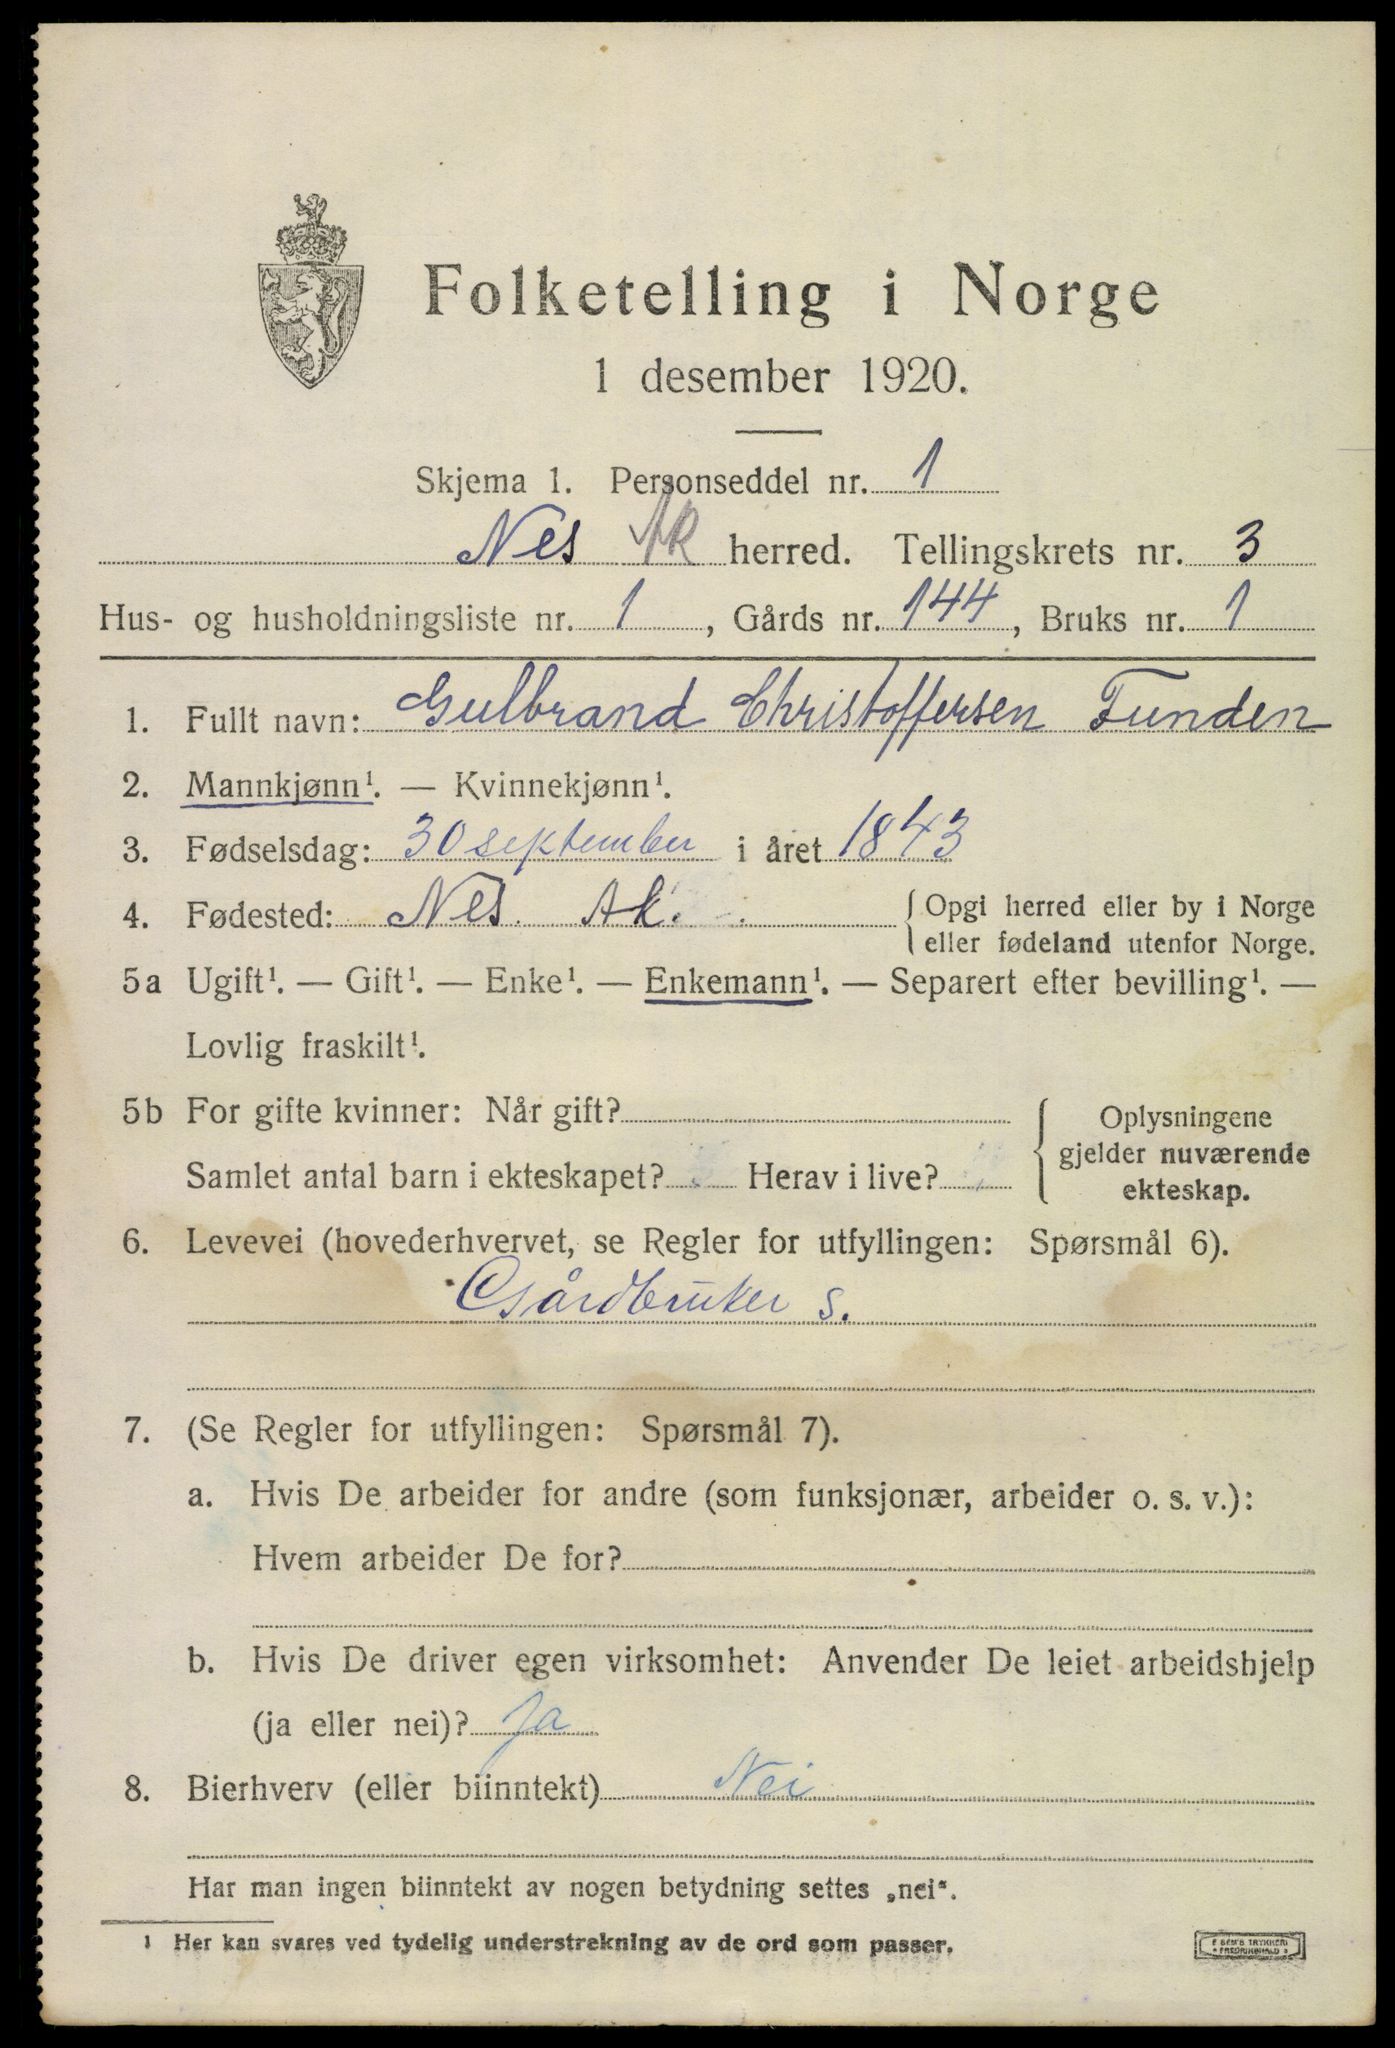 Folketelling i Norge
1 desember 1920.
Skjema 1. Personseddel nr. 1
Nes AK herred. Tellingskrets nr. 3
Hus- og husholdningsliste nr. 1, Gårds nr. 144, Bruks nr. 1
1. Fullt navn: Gulbrand Christoffersen Funden
2. Mannkjønn¹. — Kvinnekjønn¹.
3. Fødselsdag: 30 september i året 1843
4. Fødested: Nes. Ak. { Opgi herred eller by i Norge
eller fødeland utenfor Norge.
5a Ugift¹. — Gift¹. — Enke¹. — Enkemann¹. — Separert efter bevilling¹. —
Lovlig fraskilt¹.
5b For gifte kvinner: Når gift?
Samlet antal barn i ekteskapet? Herav i live?
Oplysningene
gjelder nuværende
ekteskap.
6. Levevei (hovederhvervet, se Regler for utfyllingen: Spørsmål 6).
Gårdbruker s.
7. (Se Regler for utfyllingen: Spørsmål 7).
a. Hvis De arbeider for andre (som funksjonær, arbeider o. s. v.):
Hvem arbeider De for?
b. Hvis De driver egen virksomhet: Anvender De leiet arbeidshjelp
(ja eller nei)? Ja
8. Bierhverv (eller biinntekt) Nei
Har man ingen biinntekt av nogen betydning settes „nei“.
1 Her kan svares ved tydelig understrekning av de ord som passer.
SEM'S TRYKKERI
FREDRIKSHALD